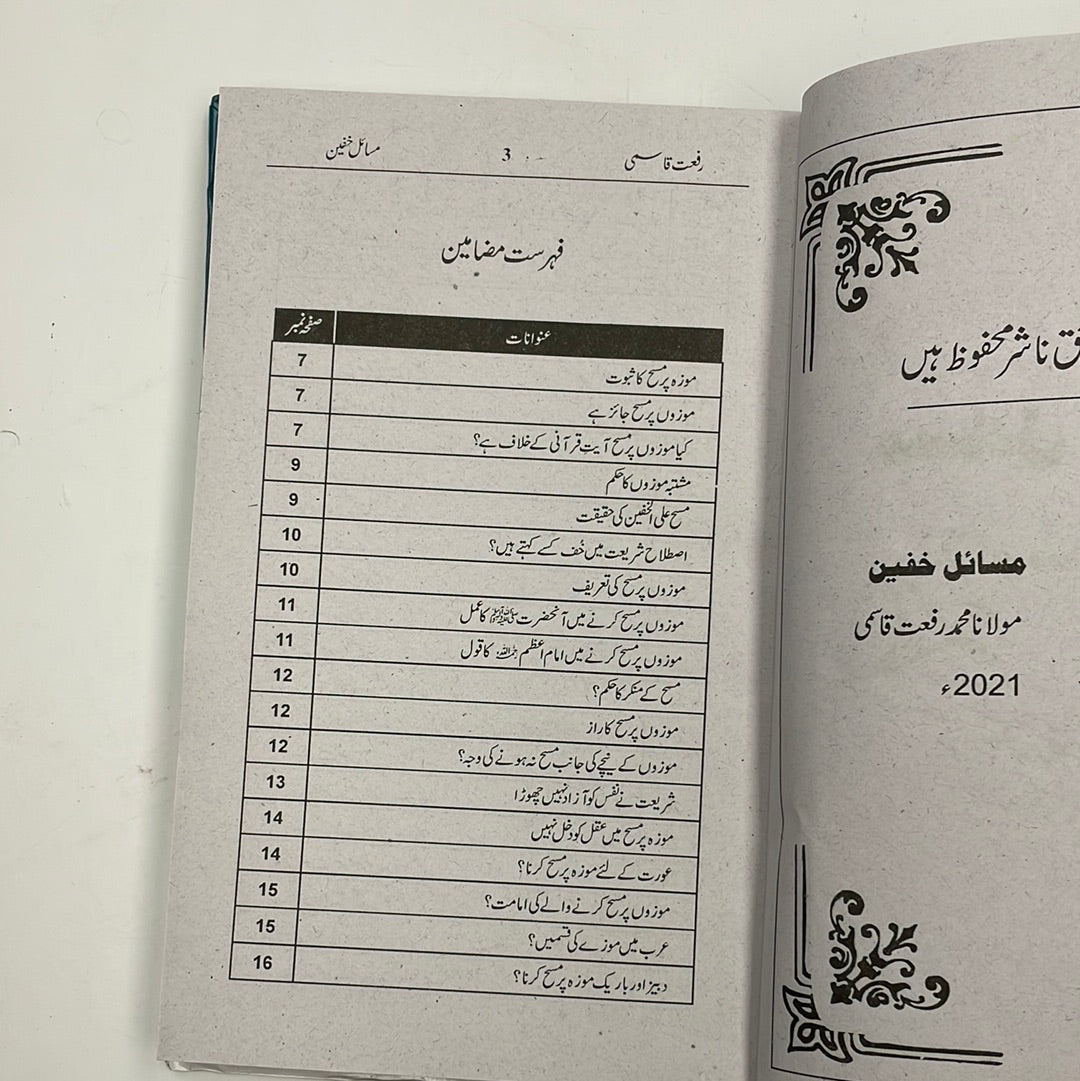 ناشر محفوظ ہیں
مسائل خفین
مولانا محمد رفعت قاسمی
2021ء
رفعت قاسمی 3 مسائل خفین
فہرست مضامین
عنوانات صفحہ نمبر
موزہ پر مسح کا ثبوت 7
موزوں پر مسح جائز ہے 7
کیا موزوں پر مسح آیت قرآنی کے خلاف ہے؟ 7
مشتبہ موزوں کا حکم 9
مسح علی الخفین کی حقیقت 9
اصطلاح شریعت میں خُف کسے کہتے ہیں؟ 10
موزوں پر مسح کی تعریف 10
موزوں پر مسح کرنے میں آنحضرت ﷺ کا عمل 11
موزوں پر مسح کرنے میں امام اعظم رحمہ اللہ کا قول 11
مسح کے منکر کا حکم؟ 12
موزوں پر مسح کا راز 12
موزوں کے نیچے کی جانب مسح نہ ہونے کی وجہ؟ 12
شریعت نے نفس کو آزاد نہیں چھوڑا 13
موزہ پر مسح میں عقل کو دخل نہیں 14
عورت کے لئے موزہ پر مسح کرنا؟ 14
موزوں پر مسح کرنے والے کی امامت؟ 15
عرب میں موزے کی قسمیں؟ 15
دبیز اور باریک موزہ پر مسح کرنا؟ 16